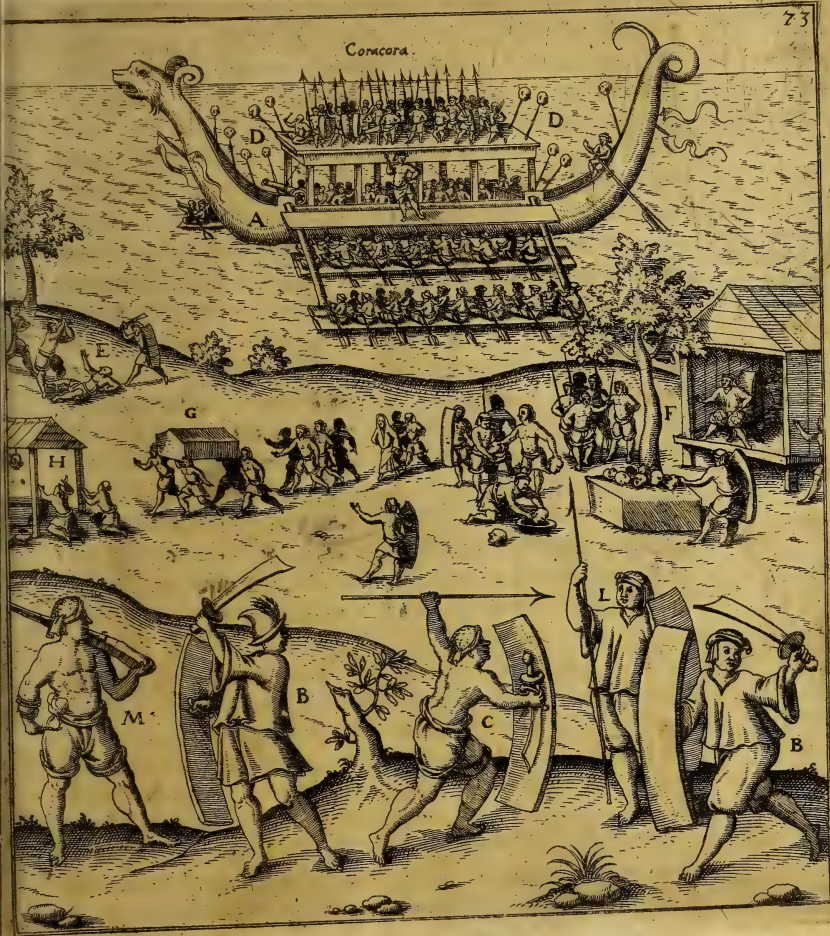 73
Coracora.
D
D
A
E
G
F
H
L
M
B
C
B